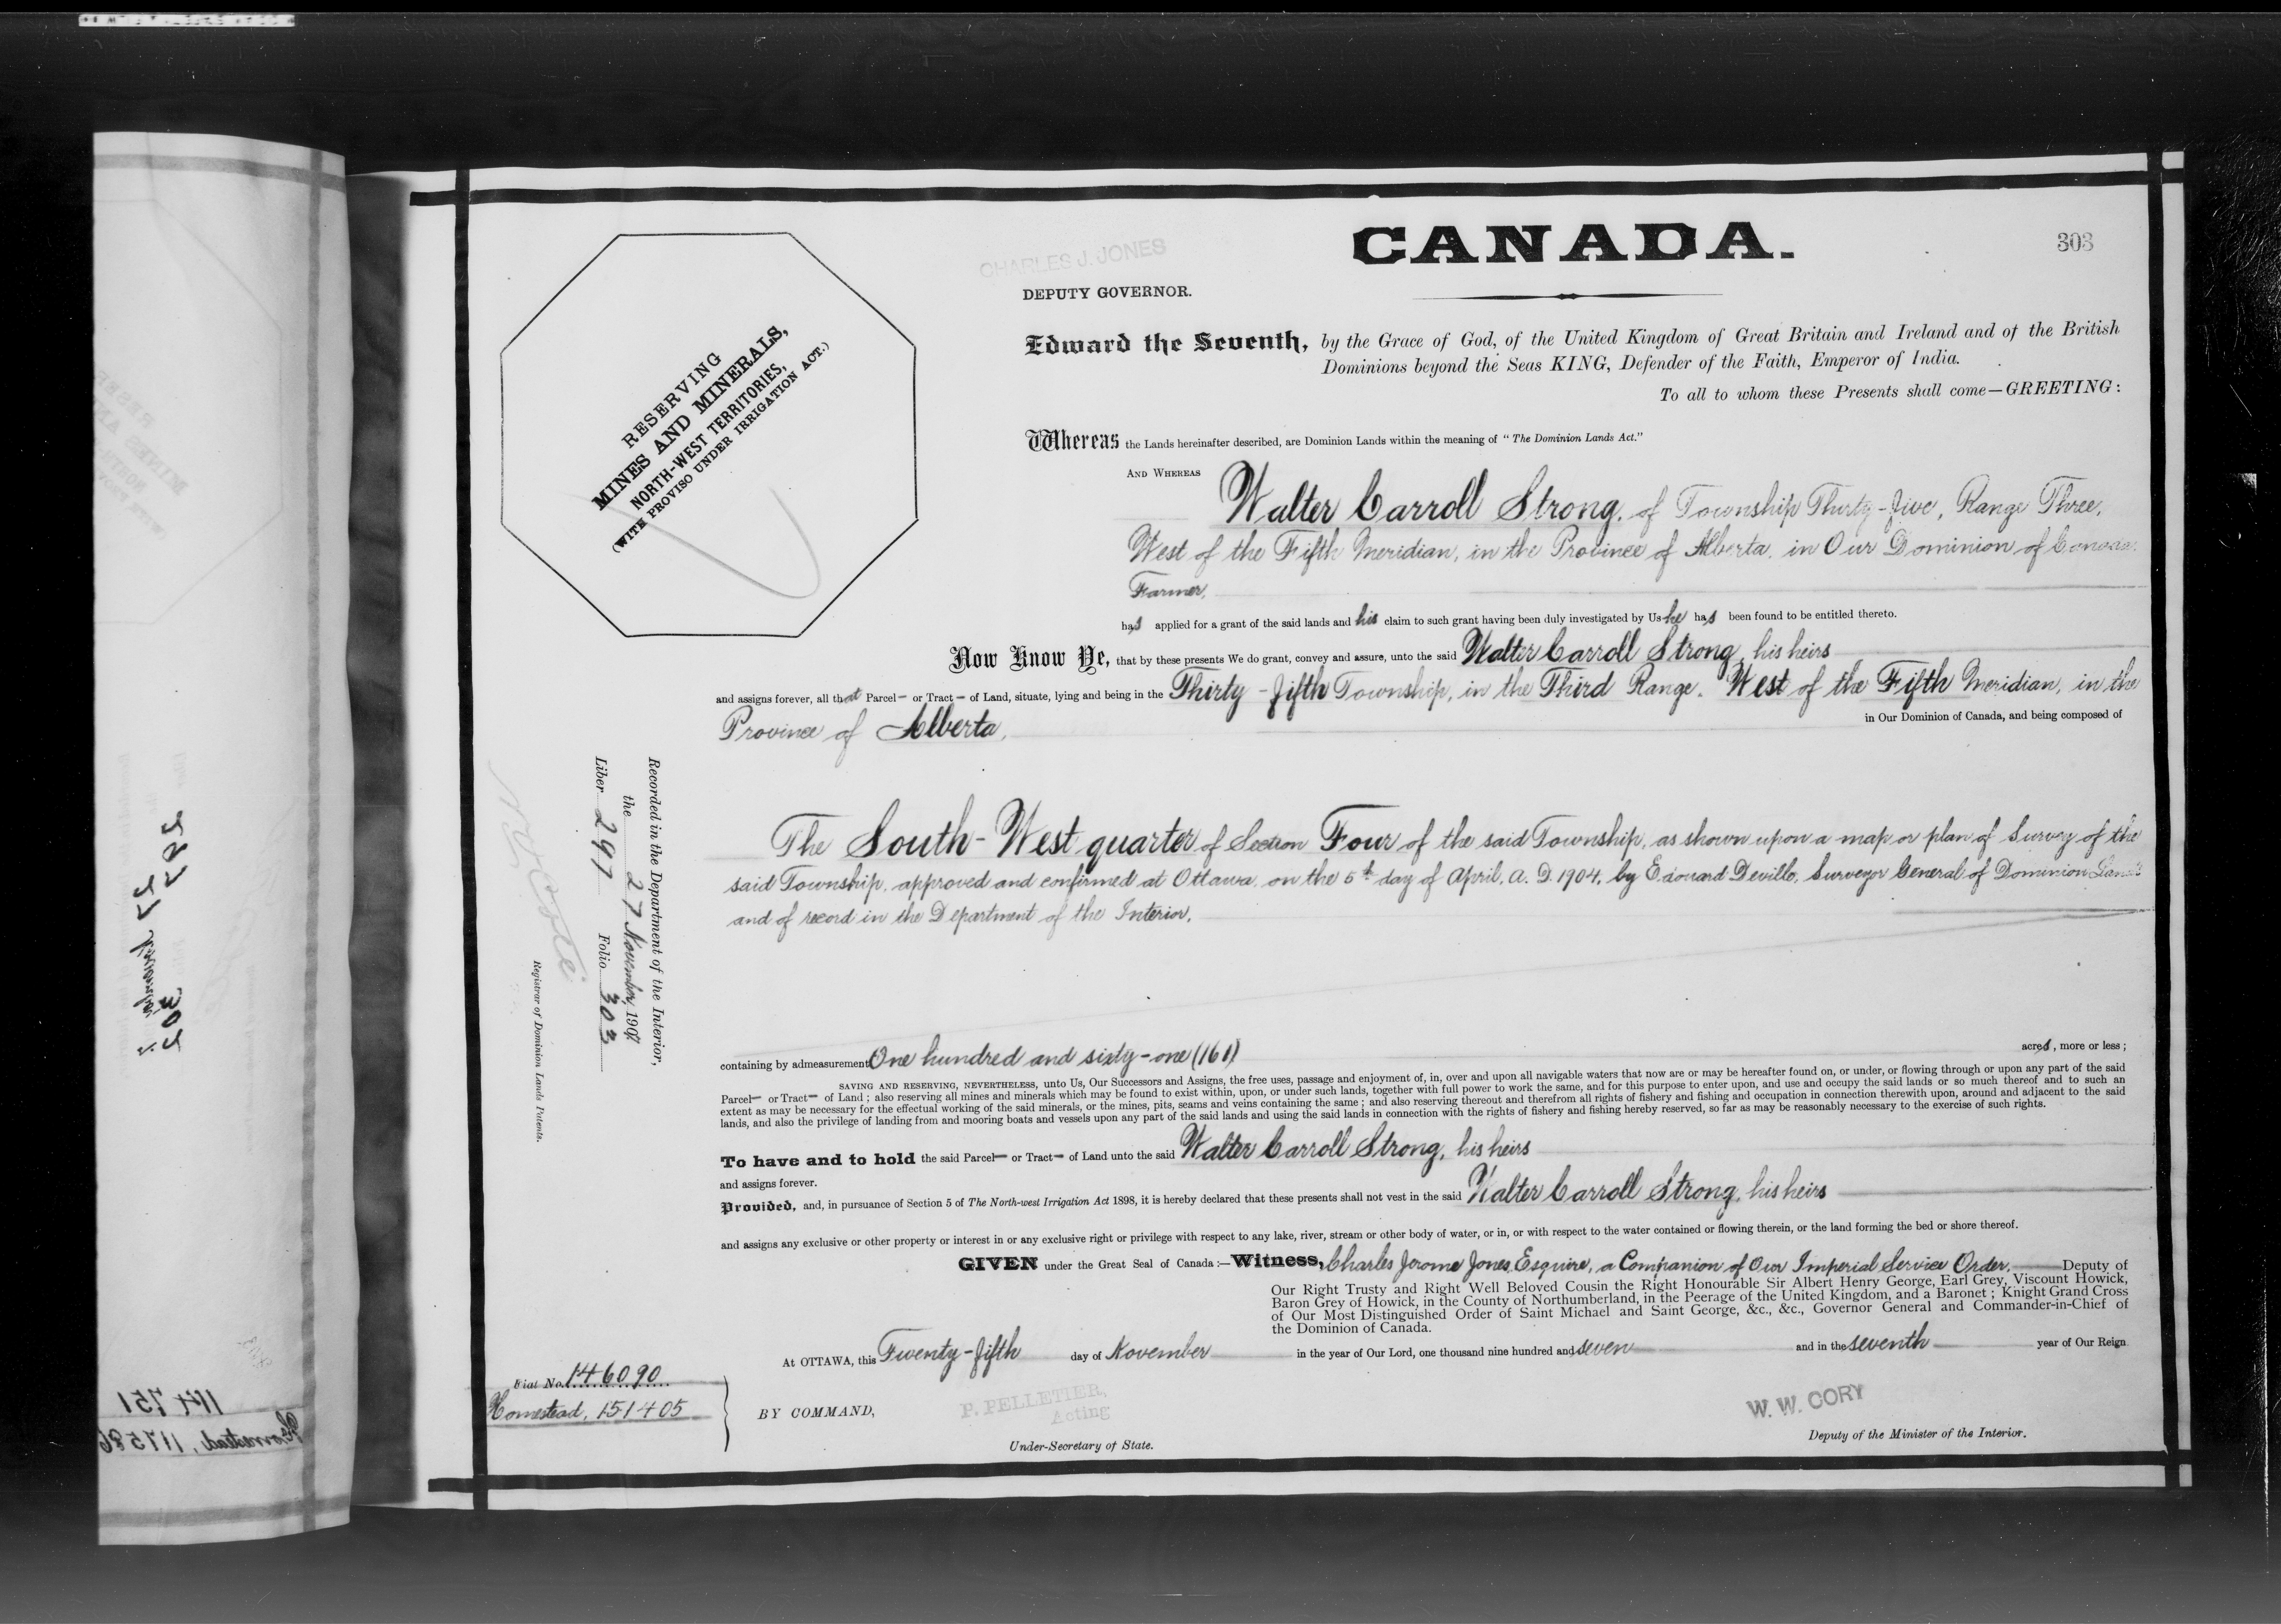 CANADA.
303
CHARLES J. JONES
DEPUTY GOVERNOR.
RESERVING
MINES AND MINERALS,
NORTH-WEST TERRITORIES,
(WITH PROVISO UNDER IRRIGATION ACT.)
Edward the Seventh, by the Grace of God, of the United Kingdom of Great Britain and Ireland and of the British
Dominions beyond the Seas KING, Defender of the Faith, Emperor of India.
To all to whom these Presents shall come—GREETING:
Whereas the Lands hereinafter described, are Dominion Lands within the meaning of "The Dominion Lands Act."
AND WHEREAS Walter Carroll Strong, of Township Thirty-five, Range Three,
West of the Fifth Meridian, in the Province of Alberta, in Our Dominion of Canada.
Farmer,
has applied for a grant of the said lands and his claim to such grant having been duly investigated by Us he has been found to be entitled thereto.
Now Know Ye, that by these presents We do grant, convey and assure, unto the said Walter Carroll Strong, his heirs
and assigns forever, all that Parcel— or Tract— of Land, situate, lying and being in the Thirty-fifth Township, in the Third Range, West of the Fifth Meridian, in the
Province of Alberta,
in Our Dominion of Canada, and being composed of
The South-West quarter of Section Four of the said Township, as shown upon a map or plan of Survey of the
said Township, approved and confirmed at Ottawa, on the 5th day of April, A. D. 1904, by Edouard Deville, Surveyor General of Dominion Lands
and of record in the Department of the Interior,
Recorded in the Department of the Interior,
the 27 November, 1907
Liber 297 Folio 303
Registrar of Dominion Lands Patents.
containing by admeasurement One hundred and sixty-one (161) acres, more or less;
SAVING AND RESERVING, NEVERTHELESS, unto Us, Our Successors and Assigns, the free uses, passage and enjoyment of, in, over and upon all navigable waters that now are or may be hereafter found on, or under, or flowing through or upon any part of the said
Parcel— or Tract— of Land; also reserving all mines and minerals which may be found to exist within, upon, or under such lands, together with full power to work the same, and for this purpose to enter upon, and use and occupy the said lands or so much thereof and to such an
extent as may be necessary for the effectual working of the said minerals, or the mines, pits, seams and veins containing the same; and also reserving thereout and therefrom all rights of fishery and fishing and occupation in connection therewith upon, around and adjacent to the said
lands, and also the privilege of landing from and mooring boats and vessels upon any part of the said lands and using the said lands in connection with the rights of fishery and fishing hereby reserved, so far as may be reasonably necessary to the exercise of such rights.
To have and to hold the said Parcel— or Tract— of Land unto the said Walter Carroll Strong, his heirs
and assigns forever.
Provided, and, in pursuance of Section 5 of The North-west Irrigation Act 1898, it is hereby declared that these presents shall not vest in the said Walter Carroll Strong, his heirs
and assigns any exclusive or other property or interest in or any exclusive right or privilege with respect to any lake, river, stream or other body of water, or in, or with respect to the water contained or flowing therein, or the land forming the bed or shore thereof.
GIVEN under the Great Seal of Canada:—Witness, Charles Jerome Jones, Esquire, a Companion of Our Imperial Service Order, Deputy of
Our Right Trusty and Right Well Beloved Cousin the Right Honourable Sir Albert Henry George, Earl Grey, Viscount Howick,
Baron Grey of Howick, in the County of Northumberland, in the Peerage of the United Kingdom, and a Baronet; Knight Grand Cross
of Our Most Distinguished Order of Saint Michael and Saint George, &c., &c., Governor General and Commander-in-Chief of
the Dominion of Canada.
At OTTAWA, this Twenty-fifth day of November in the year of Our Lord, one thousand nine hundred and seven and in the seventh year of Our Reign
Fiat No. 146090
Homestead, 151405
BY COMMAND,
P. PELLETIER,
Acting
Under-Secretary of State.
W. W. CORY
Deputy of the Minister of the Interior.
114751
Homestead, 117586